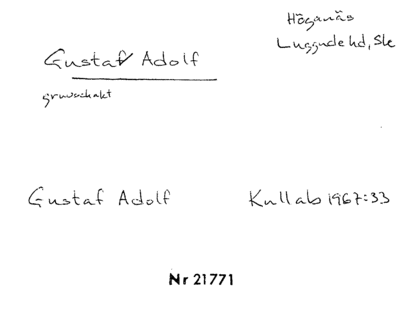 Höganäs
Luggude hd, Ske
Gustaf Adolf
gruvschakt
Gustaf Adolf Kullabs 1967:33
Nr 21771